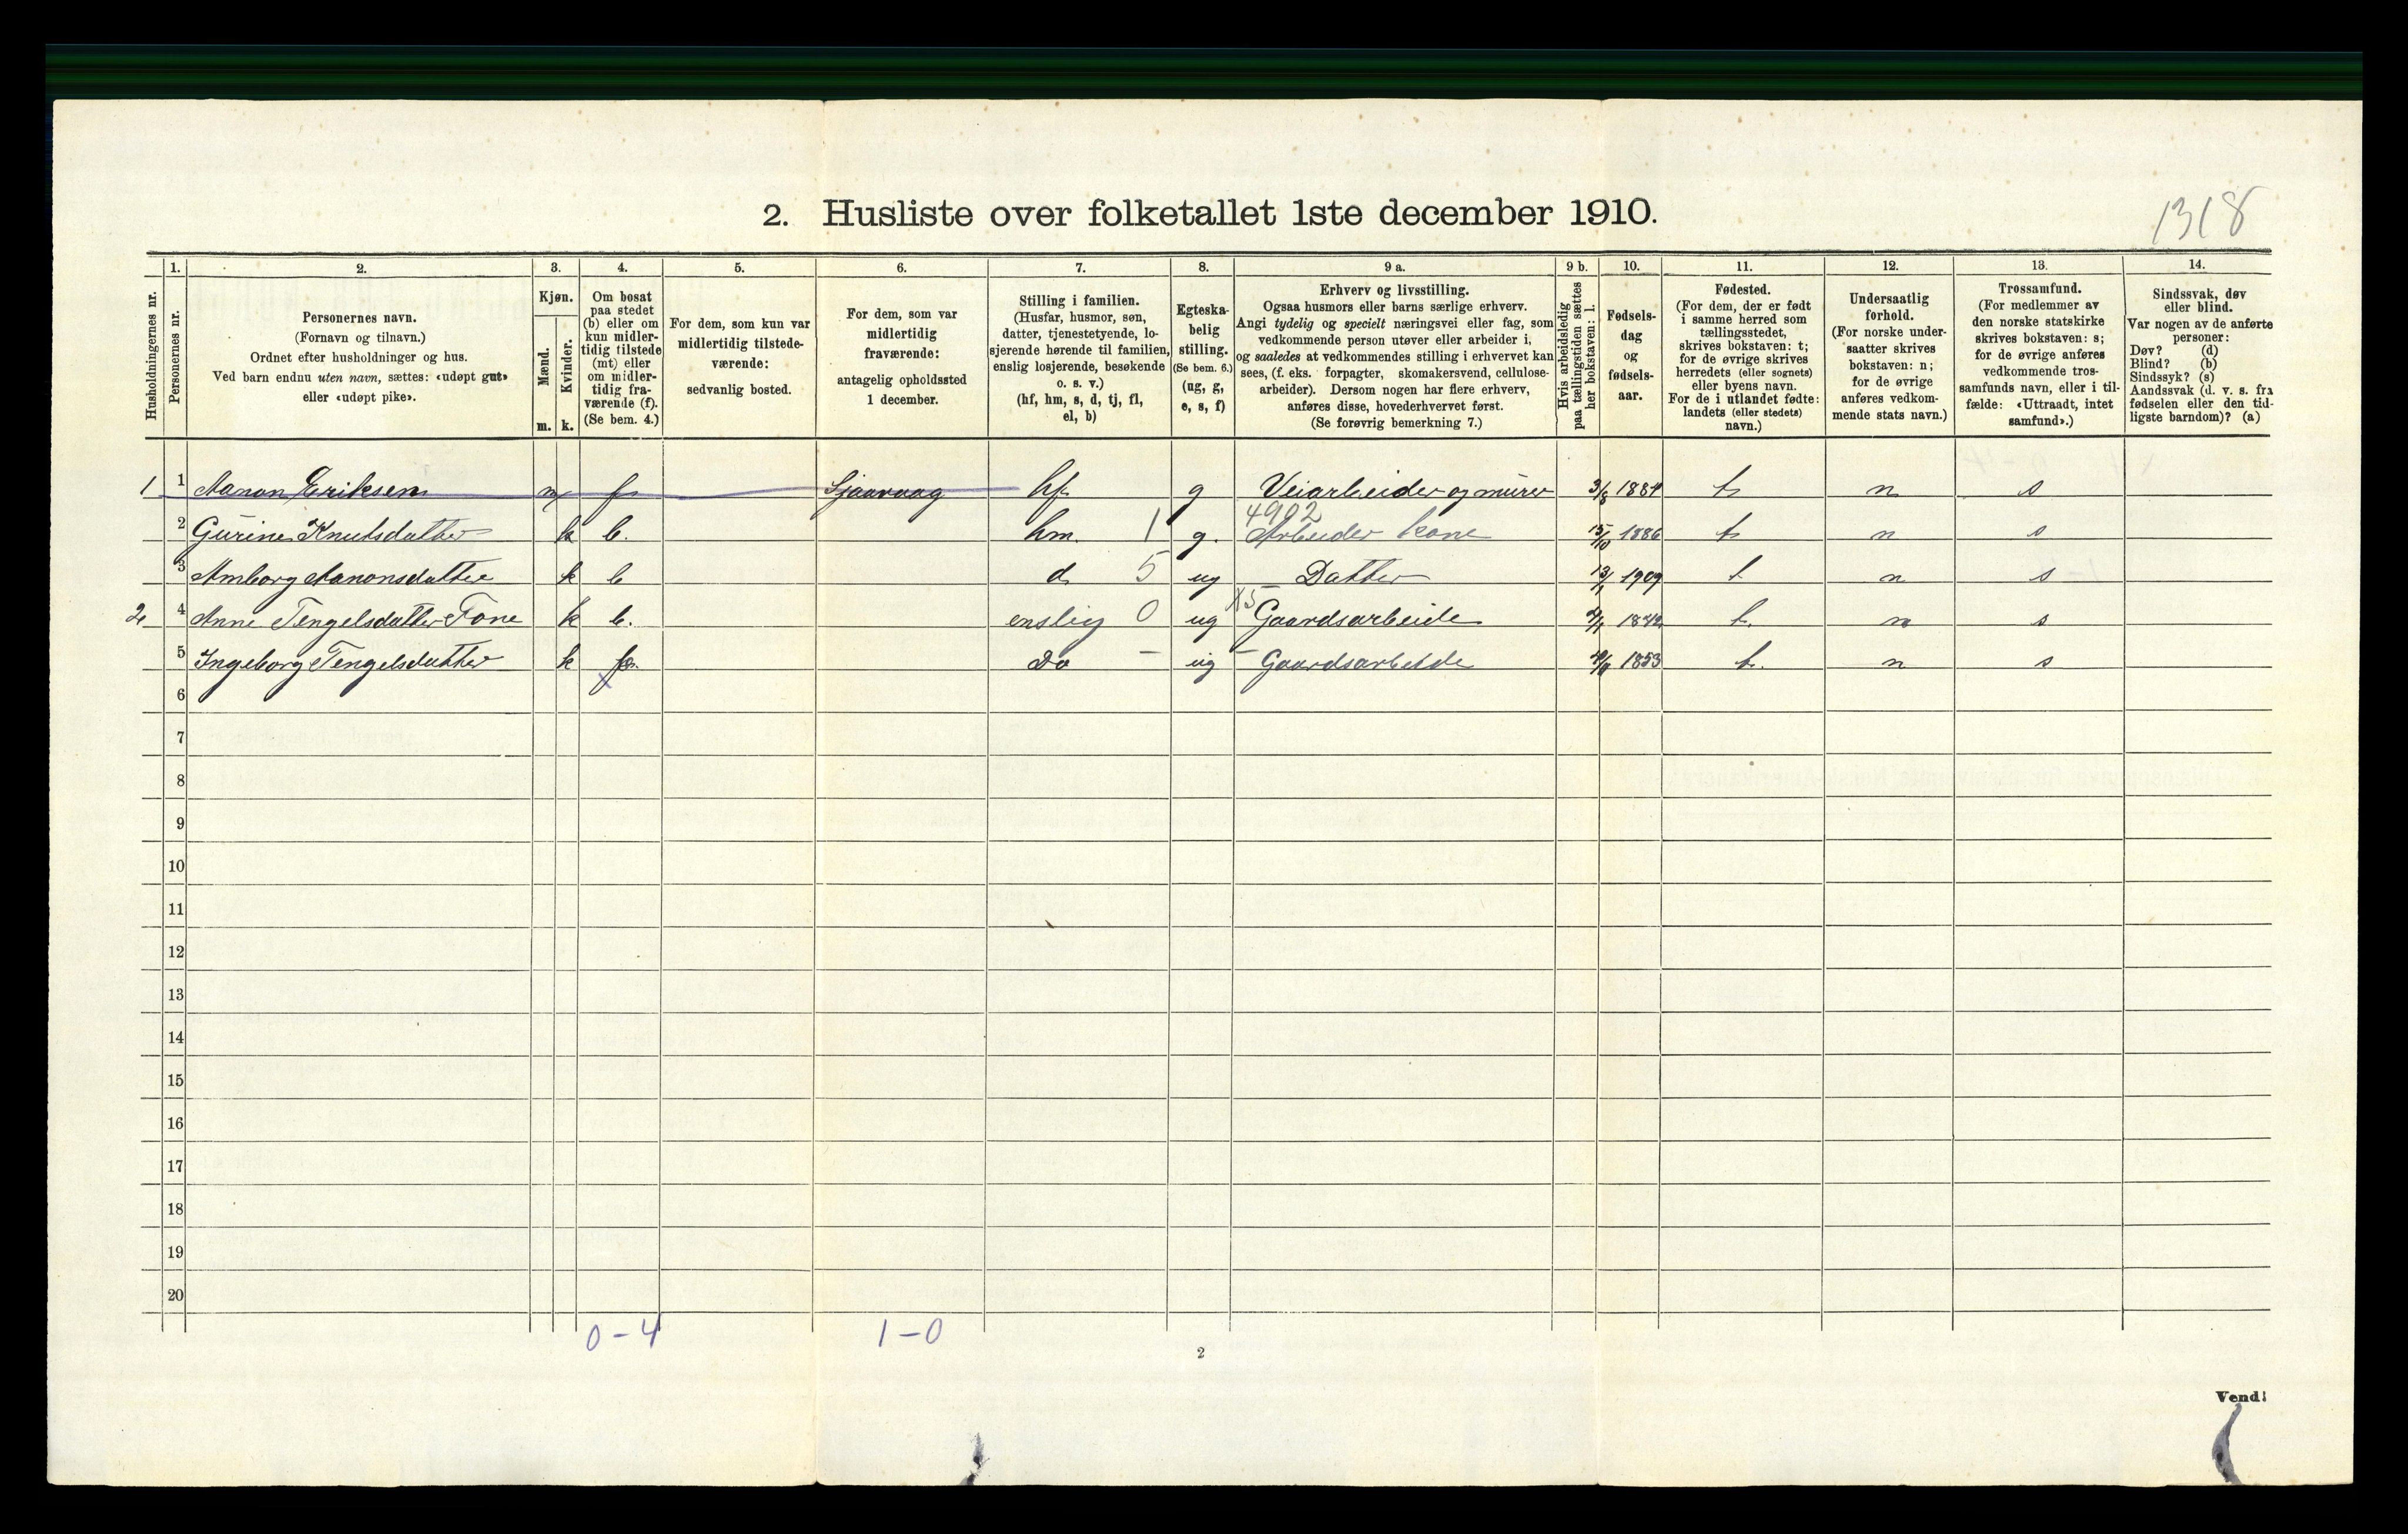 2. Husliste over folketallet 1ste december 1910.
1318
Husholdningernes nr.
1.
Personernes nr.
2.
Personernes navn.
(Fornavn og tilnavn.)
Ordnet efter husholdninger og hus.
Ved barn endnu uten navn, sættes: «udøpt gut»
eller «udøpt pike».
3.
Kjøn.
Mænd.
Kvinder.
m. k.
4.
Om bosat
paa stedet
(b) eller om
kun midler-
tidig tilstede
(mt) eller
om midler-
tidig fra-
værende (f).
(Se bem. 4.)
5.
For dem, som kun var
midlertidig tilstede-
værende:
sedvanlig bosted.
6.
For dem, som var
midlertidig
fraværende:
antagelig opholdssted
1 december.
7.
Stilling i familien.
(Husfar, husmor, søn,
datter, tjenestetyende, lo-
sjerende hørende til familien,
enslig losjerende, besøkende
o. s. v.)
(hf, hm, s, d, tj, fl,
el, b)
8.
Egteska-
belig
stilling.
(Se bem. 6.)
(ug, g,
e, s, f)
9 a.
Erhverv og livsstilling.
Ogsaa husmors eller barns særlige erhverv.
Angi tydelig og specielt næringsvei eller fag, som
vedkommende person utøver eller arbeider i,
og saaledes at vedkommendes stilling i erhvervet kan
sees, (f. eks. forpagter, skomakersvend, cellulose-
arbeider). Dersom nogen har flere erhverv,
anføres disse, hovederhvervet først.
(Se forøvrig bemerkning 7.)
9 b.
Hvis arbeidsledig
paa tællingstiden sættes
her bokstaven: l.
10.
Fødsels-
dag
og
fødsels-
aar.
11.
Fødested.
(For dem, der er født
i samme herred som
tællingsstedet,
skrives bokstaven: t;
for de øvrige skrives
herredets (eller sognets)
eller byens navn.
For de i utlandet fødte:
landets (eller stedets)
navn.)
12.
Undersaatlig
forhold.
(For norske under-
saatter skrives
bokstaven: n;
for de øvrige
anføres vedkom-
mende stats navn.)
13.
Trossamfund.
(For medlemmer av
den norske statskirke
skrives bokstaven: s;
for de øvrige anføres
vedkommende tros-
samfunds navn, eller i til-
fælde: «Uttraadt, intet
samfund».)
14.
Sindssvak, døv
eller blind.
Var nogen av de anførte
personer:
Døv? (d)
Blind? (b)
Sindssyk? (s)
Aandssvak (d. v. s. fra
fødselen eller den tid-
ligste barndom)? (a)
1 1 Aanon Eriksen m f hf g Veiarbeider og mürer 3/8 1884 t n s
4902
2 Gürine Knutsdatter k b. hm. 1 g. Arbeider kone 15/10 1886 t n s
3 Amborg Aanonsdatter k b d. 5 ug Datter 13/1 1909 t n s
2 4 Anne Tengelsdatter Fone k b. enslig 0 ug Gaardsarbeide 1842 t. n s
5 Ingeborg Tengelsdatter k Do ug Gaardsarbeide 1853 t. n s
6
7
8
9
10
11
12
13
14
15
16
17
18
19
20
0 – 4 1 – 0
2
Vend!